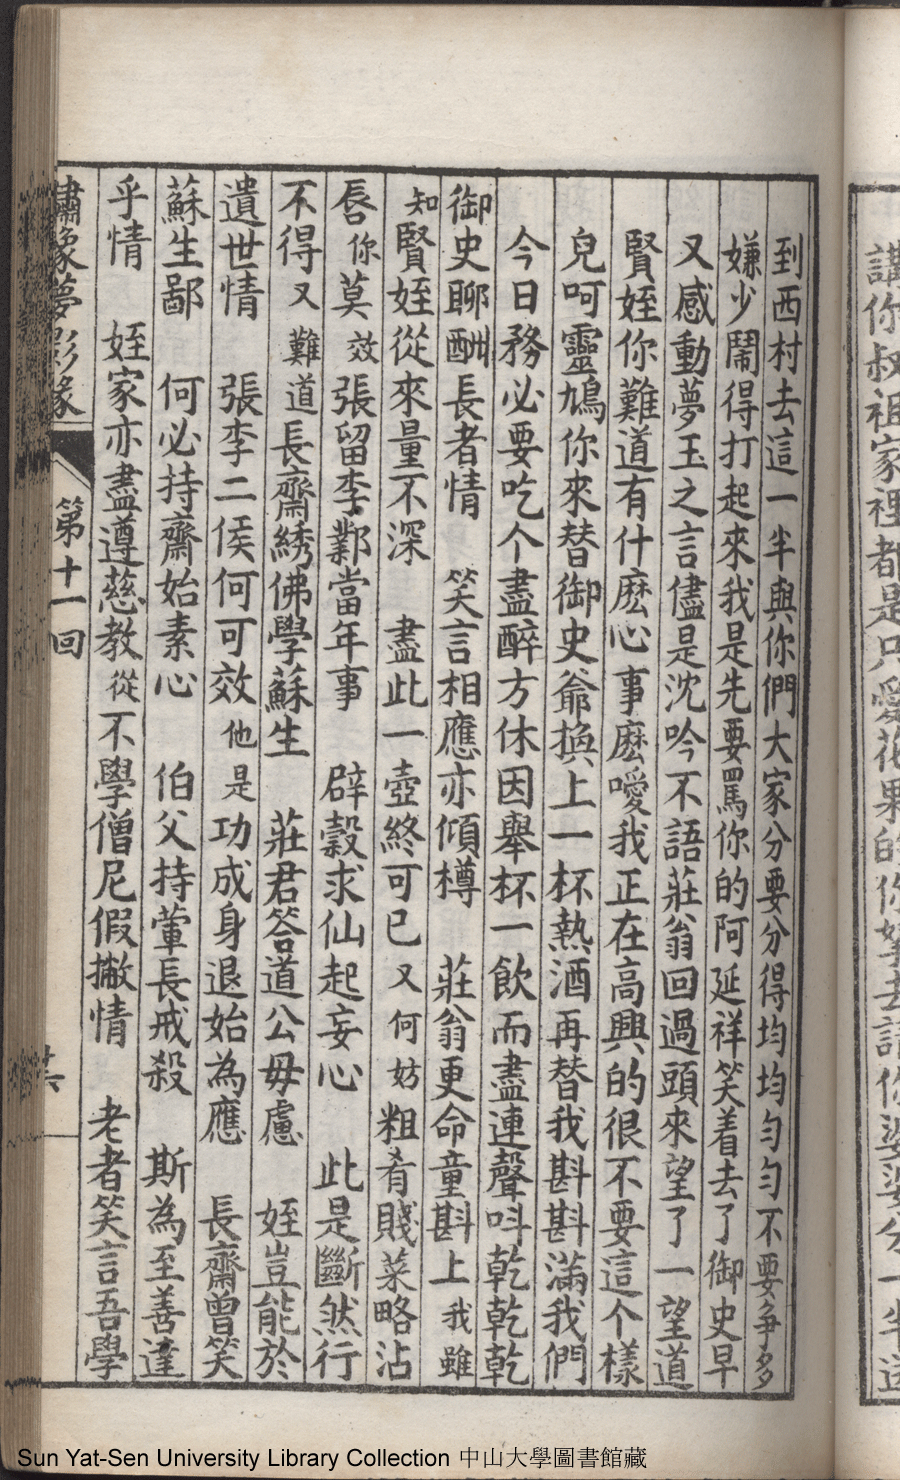 講你叔祖家裡都是只愛花果的你拿去請你婆婆分一半送
到西村去這一半與你們大家分要分得均均勻勻不要爭多
嫌少鬧得打起來我是先要罵你的阿延祥笑着去了御史早
又感動夢玉之言儘是沈吟不語莊翁回過頭來望了一望道
賢姪你難道有什麽心事麽噯我正在高興的很不要這个樣
兒呵靈鳩你來替御史爺換上一杯熱酒再替我斟斟滿我們
今日務必要吃个盡醉方休因舉杯一飲而盡連聲呌乾乾乾
御史聊酬長者情 笑言相應亦傾樽 莊翁更命童斟上 我雖
知賢姪從來量不深 盡此一壺終可已 又何妨粗肴賤菜略沾
唇 你莫效張留李鄴當年事 辟穀求仙起妄心 此是斷然行
不得 又難道長齋綉佛學蘇生 莊君答道公毋慮 姪豈能於
遺世情 張李二侯何可效 他是功成身退始為應 長齋曾笑
蘇生鄙 何必持齋始素心 伯父持葷長戒殺 斯為至善達
乎情 姪家亦盡遵慈教 從不學僧尼假撇情 老者笑言吾學
繡像夢影緣 第十一回
Sun Yat-Sen University Library Collection 中山大學圖書館藏